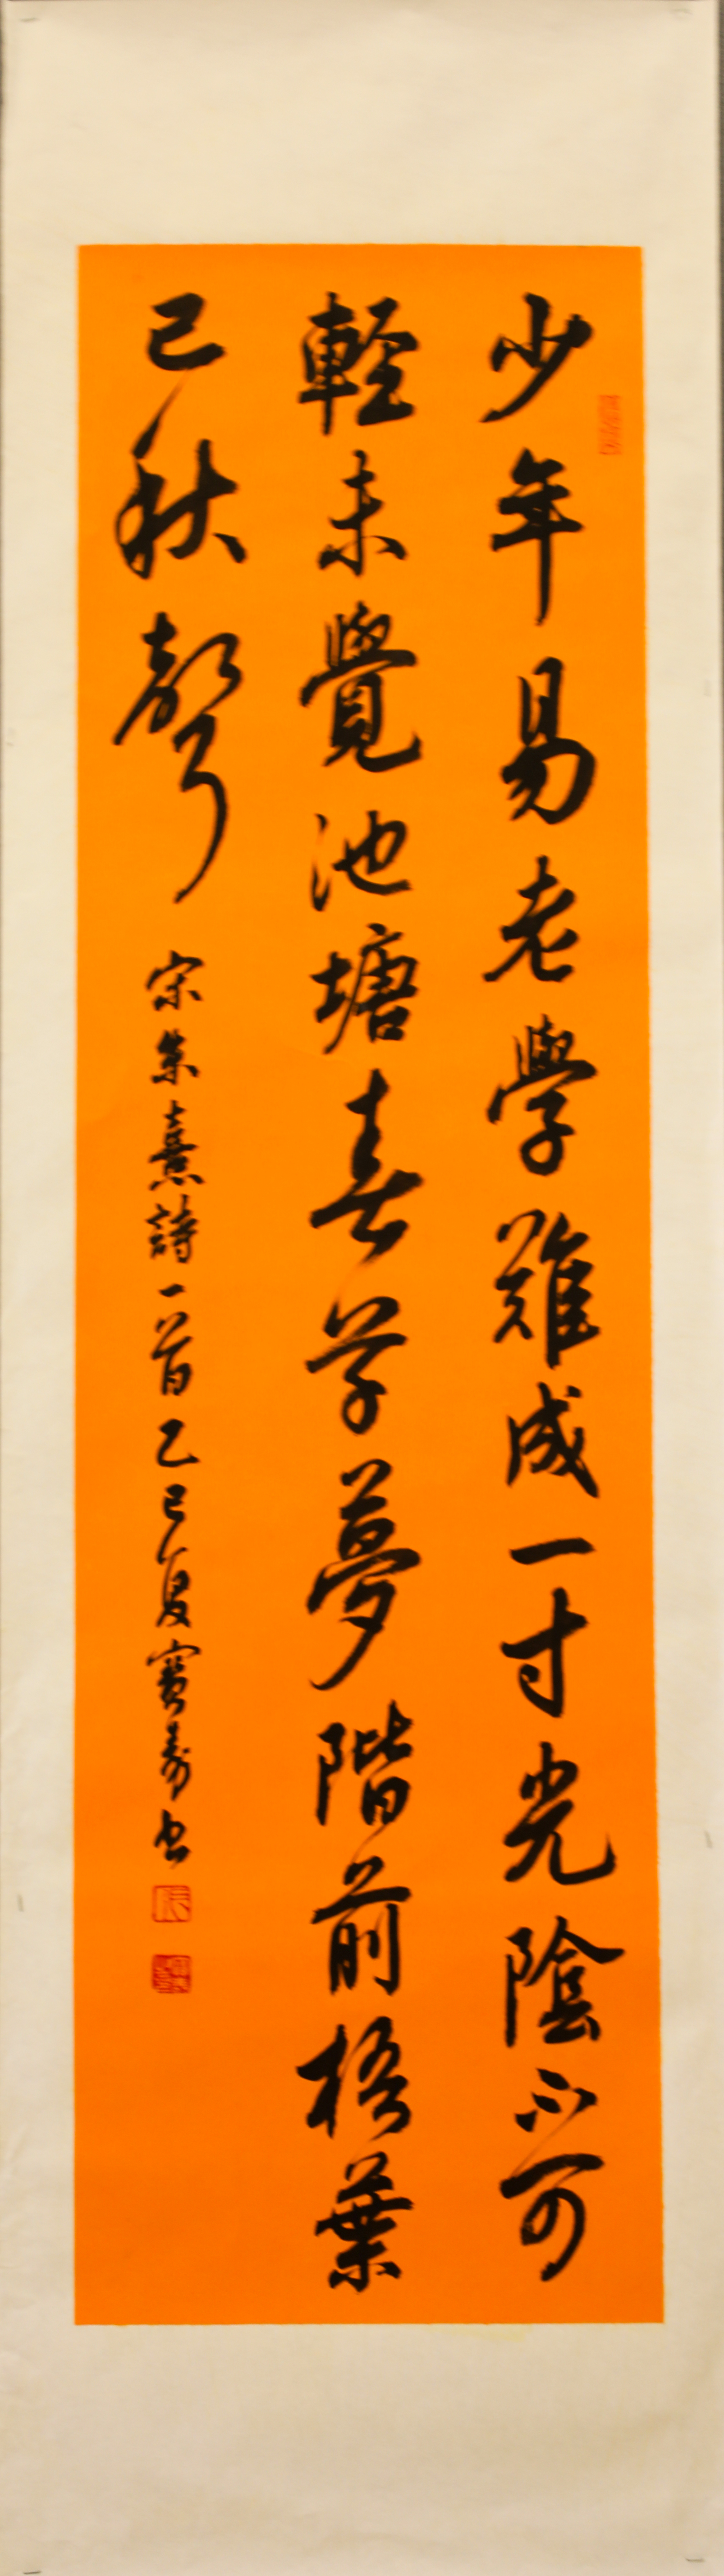 少年易老學難成一寸光陰不可
輕未覺池塘春草夢階前梧葉
已秋聲
宋朱熹詩一首乙巳夏寶壽书